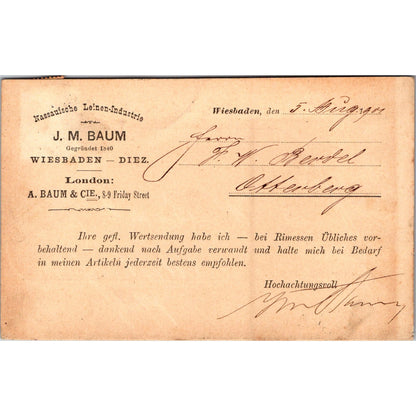 Nassauische Leinen-Industrie
J. M. BAUM
Gegründet 1840
WIESBADEN — DIEZ.
London:
A. BAUM & CIE., 8-9 Friday Street
Wiesbaden, den 5. Aug. 901
Herrn
F. W. Bendel
Otterberg
Ihre gefl. Wertsendung habe ich — bei Rimessen Übliches vor-
behaltend — dankend nach Aufgabe verwandt und halte mich bei Bedarf
in meinen Artikeln jederzeit bestens empfohlen.
Hochachtungsvoll